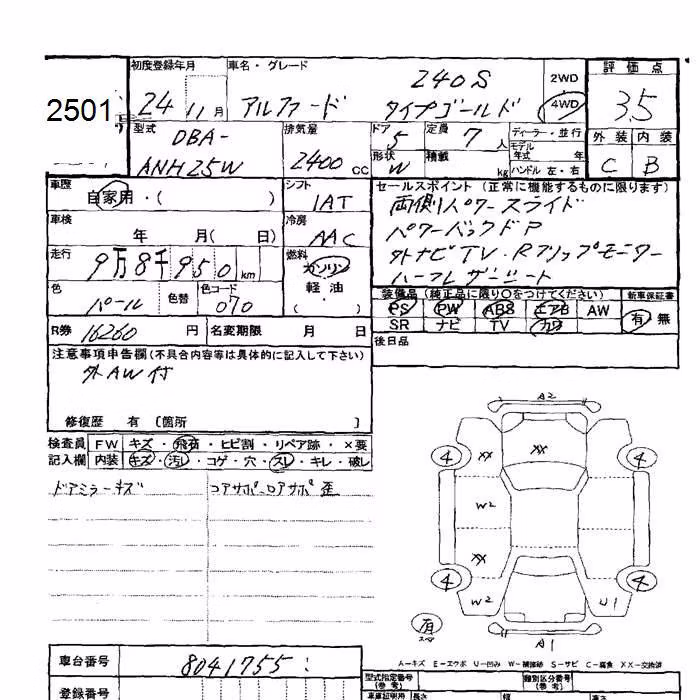 初度登録年月 車名・グレード 評価点
2501 24 11月 アルファード 240S タイプゴールド 2WD 4WD 3.5
型式 DBA-ANH25W 排気量 2400 CC ドア 5 形状 W 定員 7 人 積載 kg
ディーラー・並行 モデル年式 年 ハンドル 左・右
外装 内装
C B
車歴 自家用・( ) シフト IAT
セールスポイント (正常に機能するものに限ります)
両側パワースライド
パワーバックドア
外ナビTV・Rフリップモニター
車検 年 月( 日) 冷房 AAC
走行 9万8千950km 燃料 ガソリン 軽油 ( )
色 パール 色替 色コード 070
装備品 (純正品に限り〇をつけてください) 新車保証書
PS PW ABS エアB AW 有 無
SR ナビ TV カワ
R券 16260 円 名変期限 月 日
後日品
注意事項申告欄(不具合内容等は具体的に記入して下さい)
外AW付
修復歴 有 〔箇所 〕
検査員 FW キズ・飛石・ヒビ割・リペア跡・×要
記入欄 内装 キズ・汚レ・コゲ・穴・スレ・キレ・破レ
ドアミラーキズ コアサポ-ロアサポ歪
A2
4 XX XX 4
W2
XX
4 W2 U1 4
有 スペア A1
A-キズ E-エクボ U-凹み W-補修跡 S-サビ C-腐食 XX-交換済
車台番号 8041755
登録番号
型式指定番号 (参考) 類別区分番号 (参考)
車庫証明用 長さ 幅 高さ